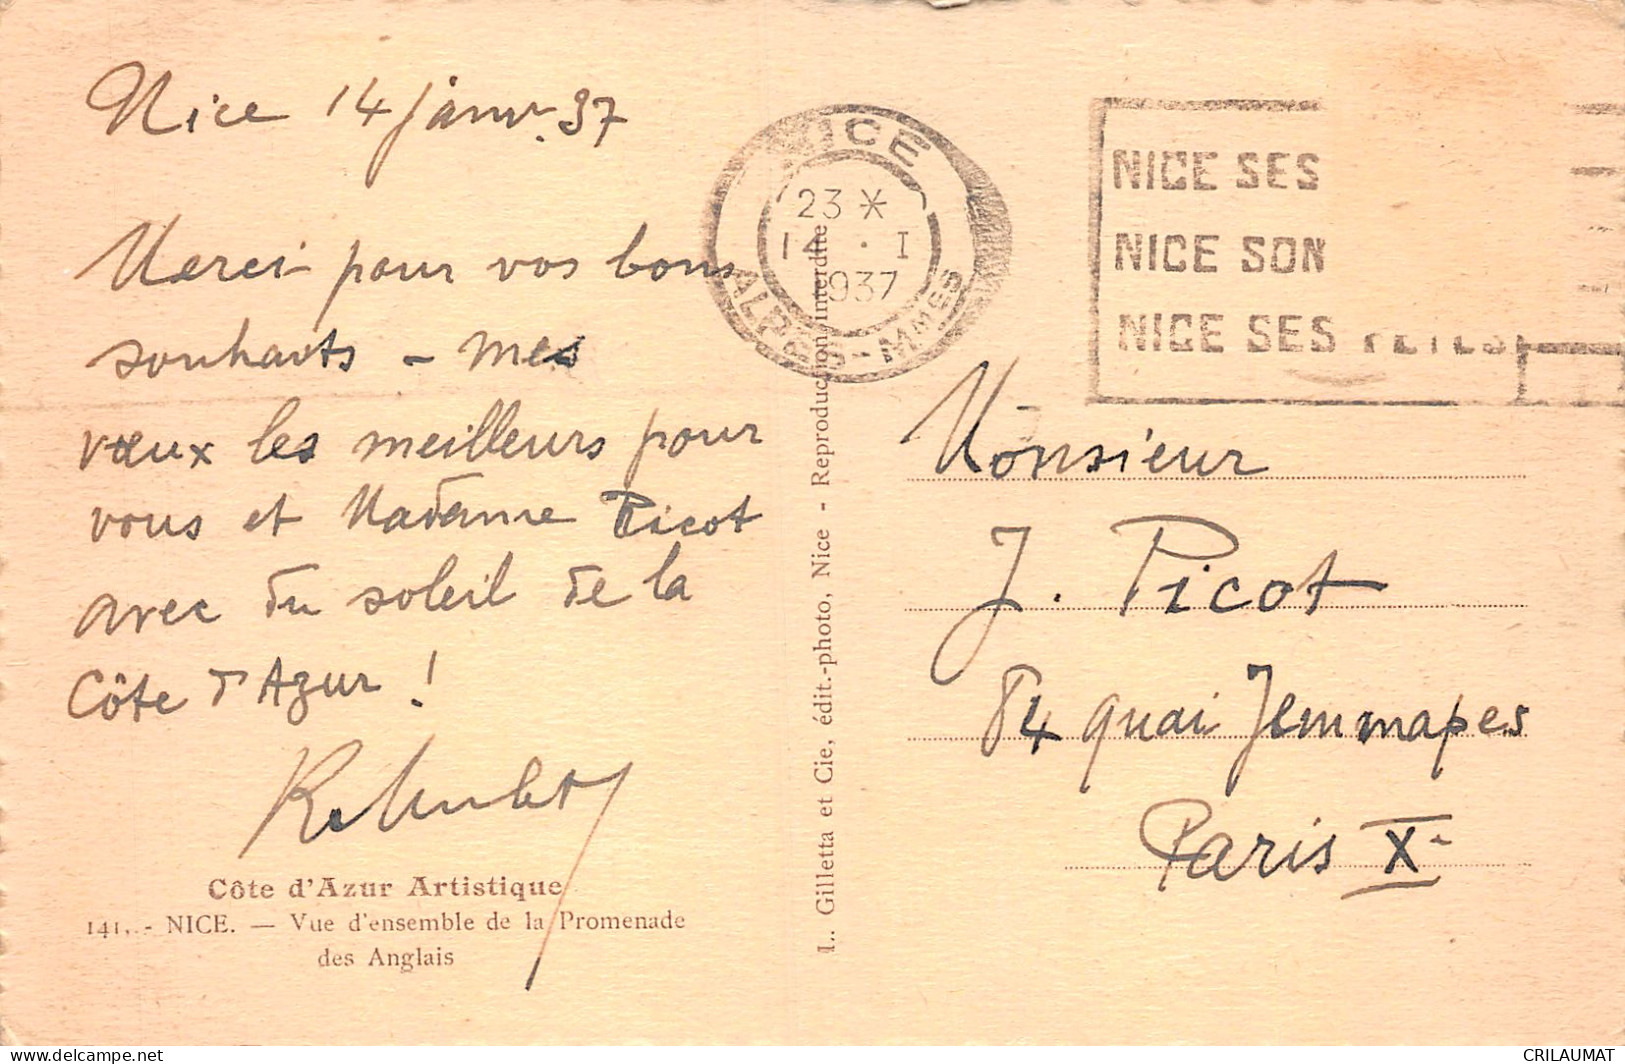 Nice 14 janv. 37
Merci pour vos bons
souhaits - mes
vœux les meilleurs pour
vous et Madame Picot
avec du soleil de la
Côte d'Azur !
Côte d'Azur Artistique
141. - NICE. — Vue d'ensemble de la Promenade
des Anglais
L. Gilletta et Cie, édit.-photo, Nice - Reproduction interdite
NICE
23 *
14 . I
1937
ALPES-MMES
NICE SES
NICE SON
NICE SES FETES
Monsieur
J. Picot
84 quai Jemmapes
Paris X
delcampe.net
CRILAUMAT